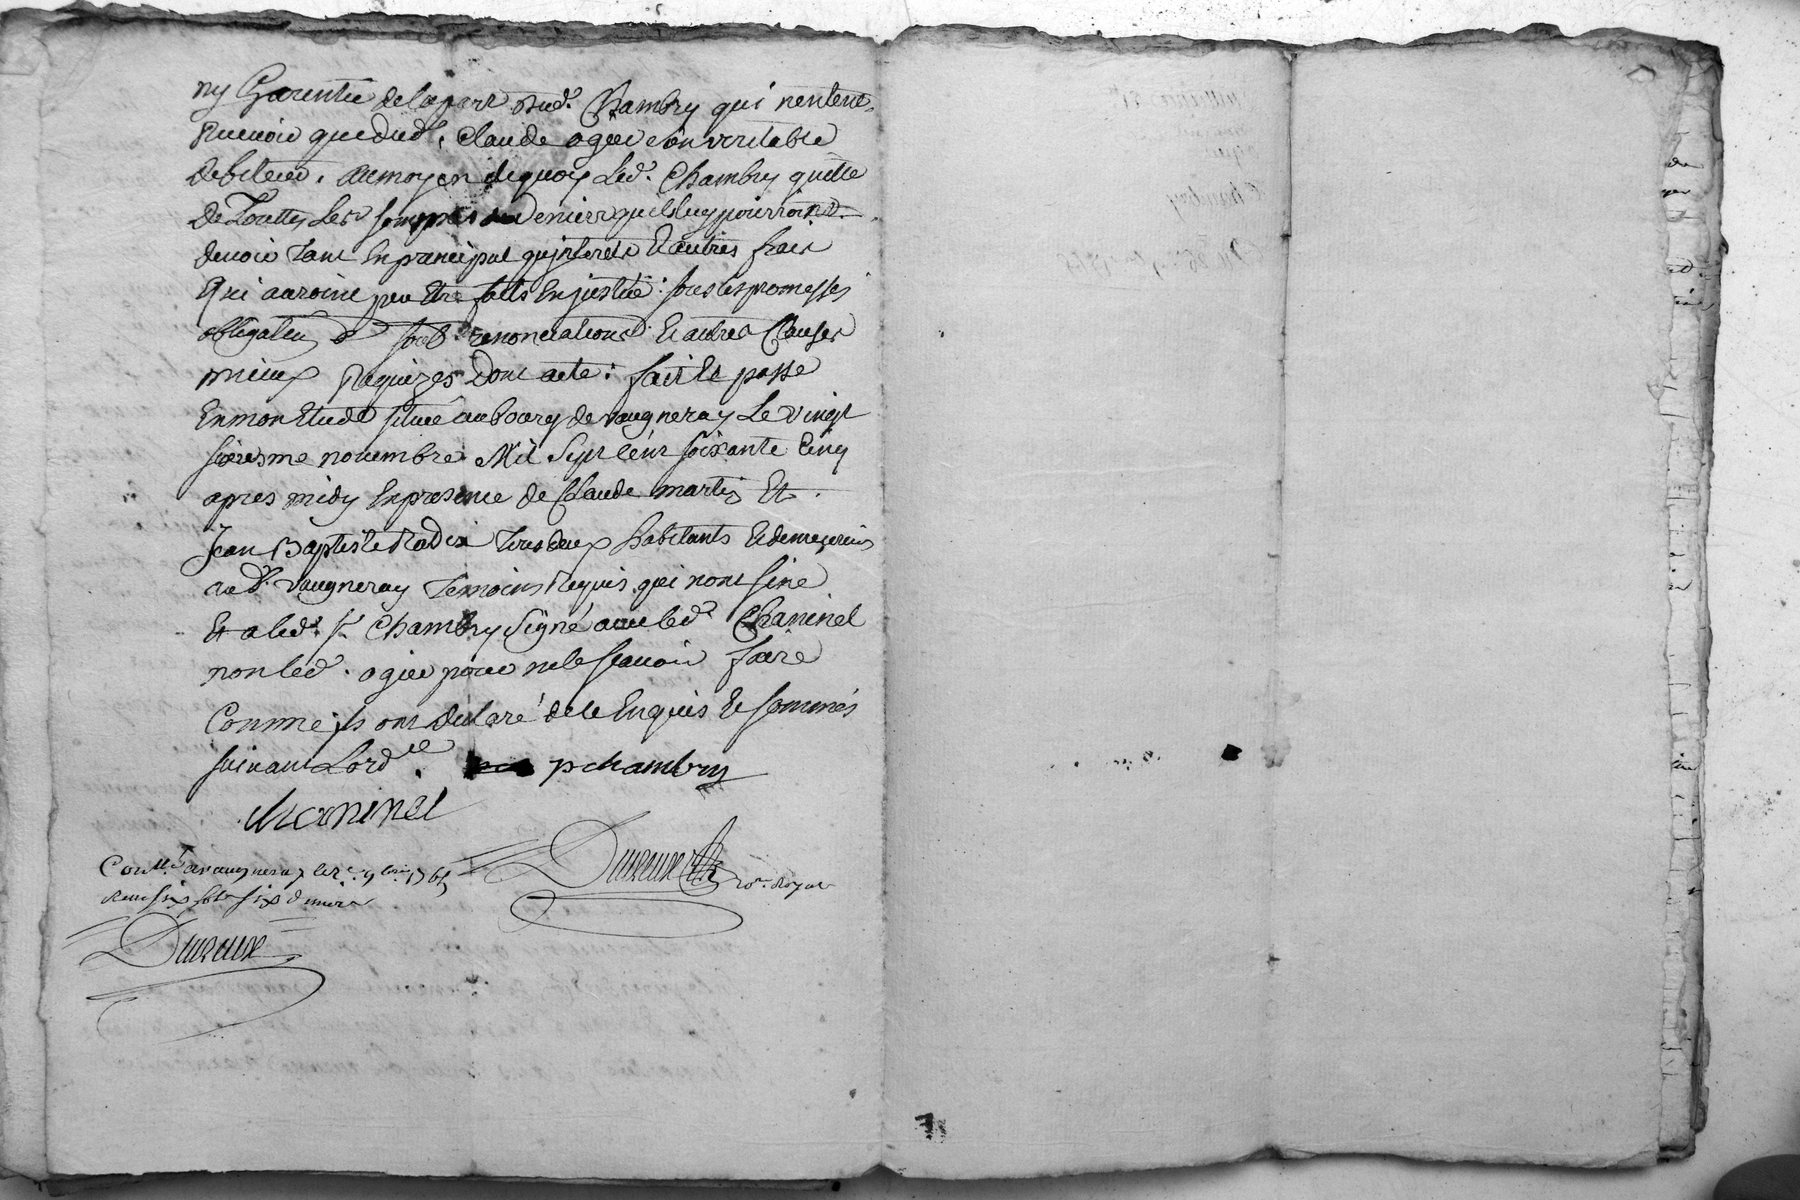 ny Garentie de la part dud. Chambry qui nentent
Recevoir que dud. Claude ogier son veritable
debiteur. au moyen dequoy Led. Chambry quitte
de Touttes Les sommes deniers quils luy pourroint
devoir tant En principal qu'jnterets Et autres frais
Qui auroint peu Etre faits En justice : sous les promesses
obligation renonciations Et autres Clauses
mieux Requizes dont acte : fait Et passé
En mon Etude situé au bourg de vaugneray Le vingt
sixiesme novembre Mil Sept Cent soixante Cinq
apres midy En presence de Claude martin Et
Jean Baptiste Rodix tous deux habitants Et demeurants
aud. vaugneray Temoins Requis qui n'ont siné
Et a led. sr Chambry signé avec led. Chaninel
non led. ogier pour ne le scavoir faire
Comme jls ont declaré de le Enquis Et sommés
suivant Lord.ce pchambry
chaninel
Conllé a vaugneray le 9bre 1765
Reçu six sols six deniers
Dureux no.re Royal
Dureux